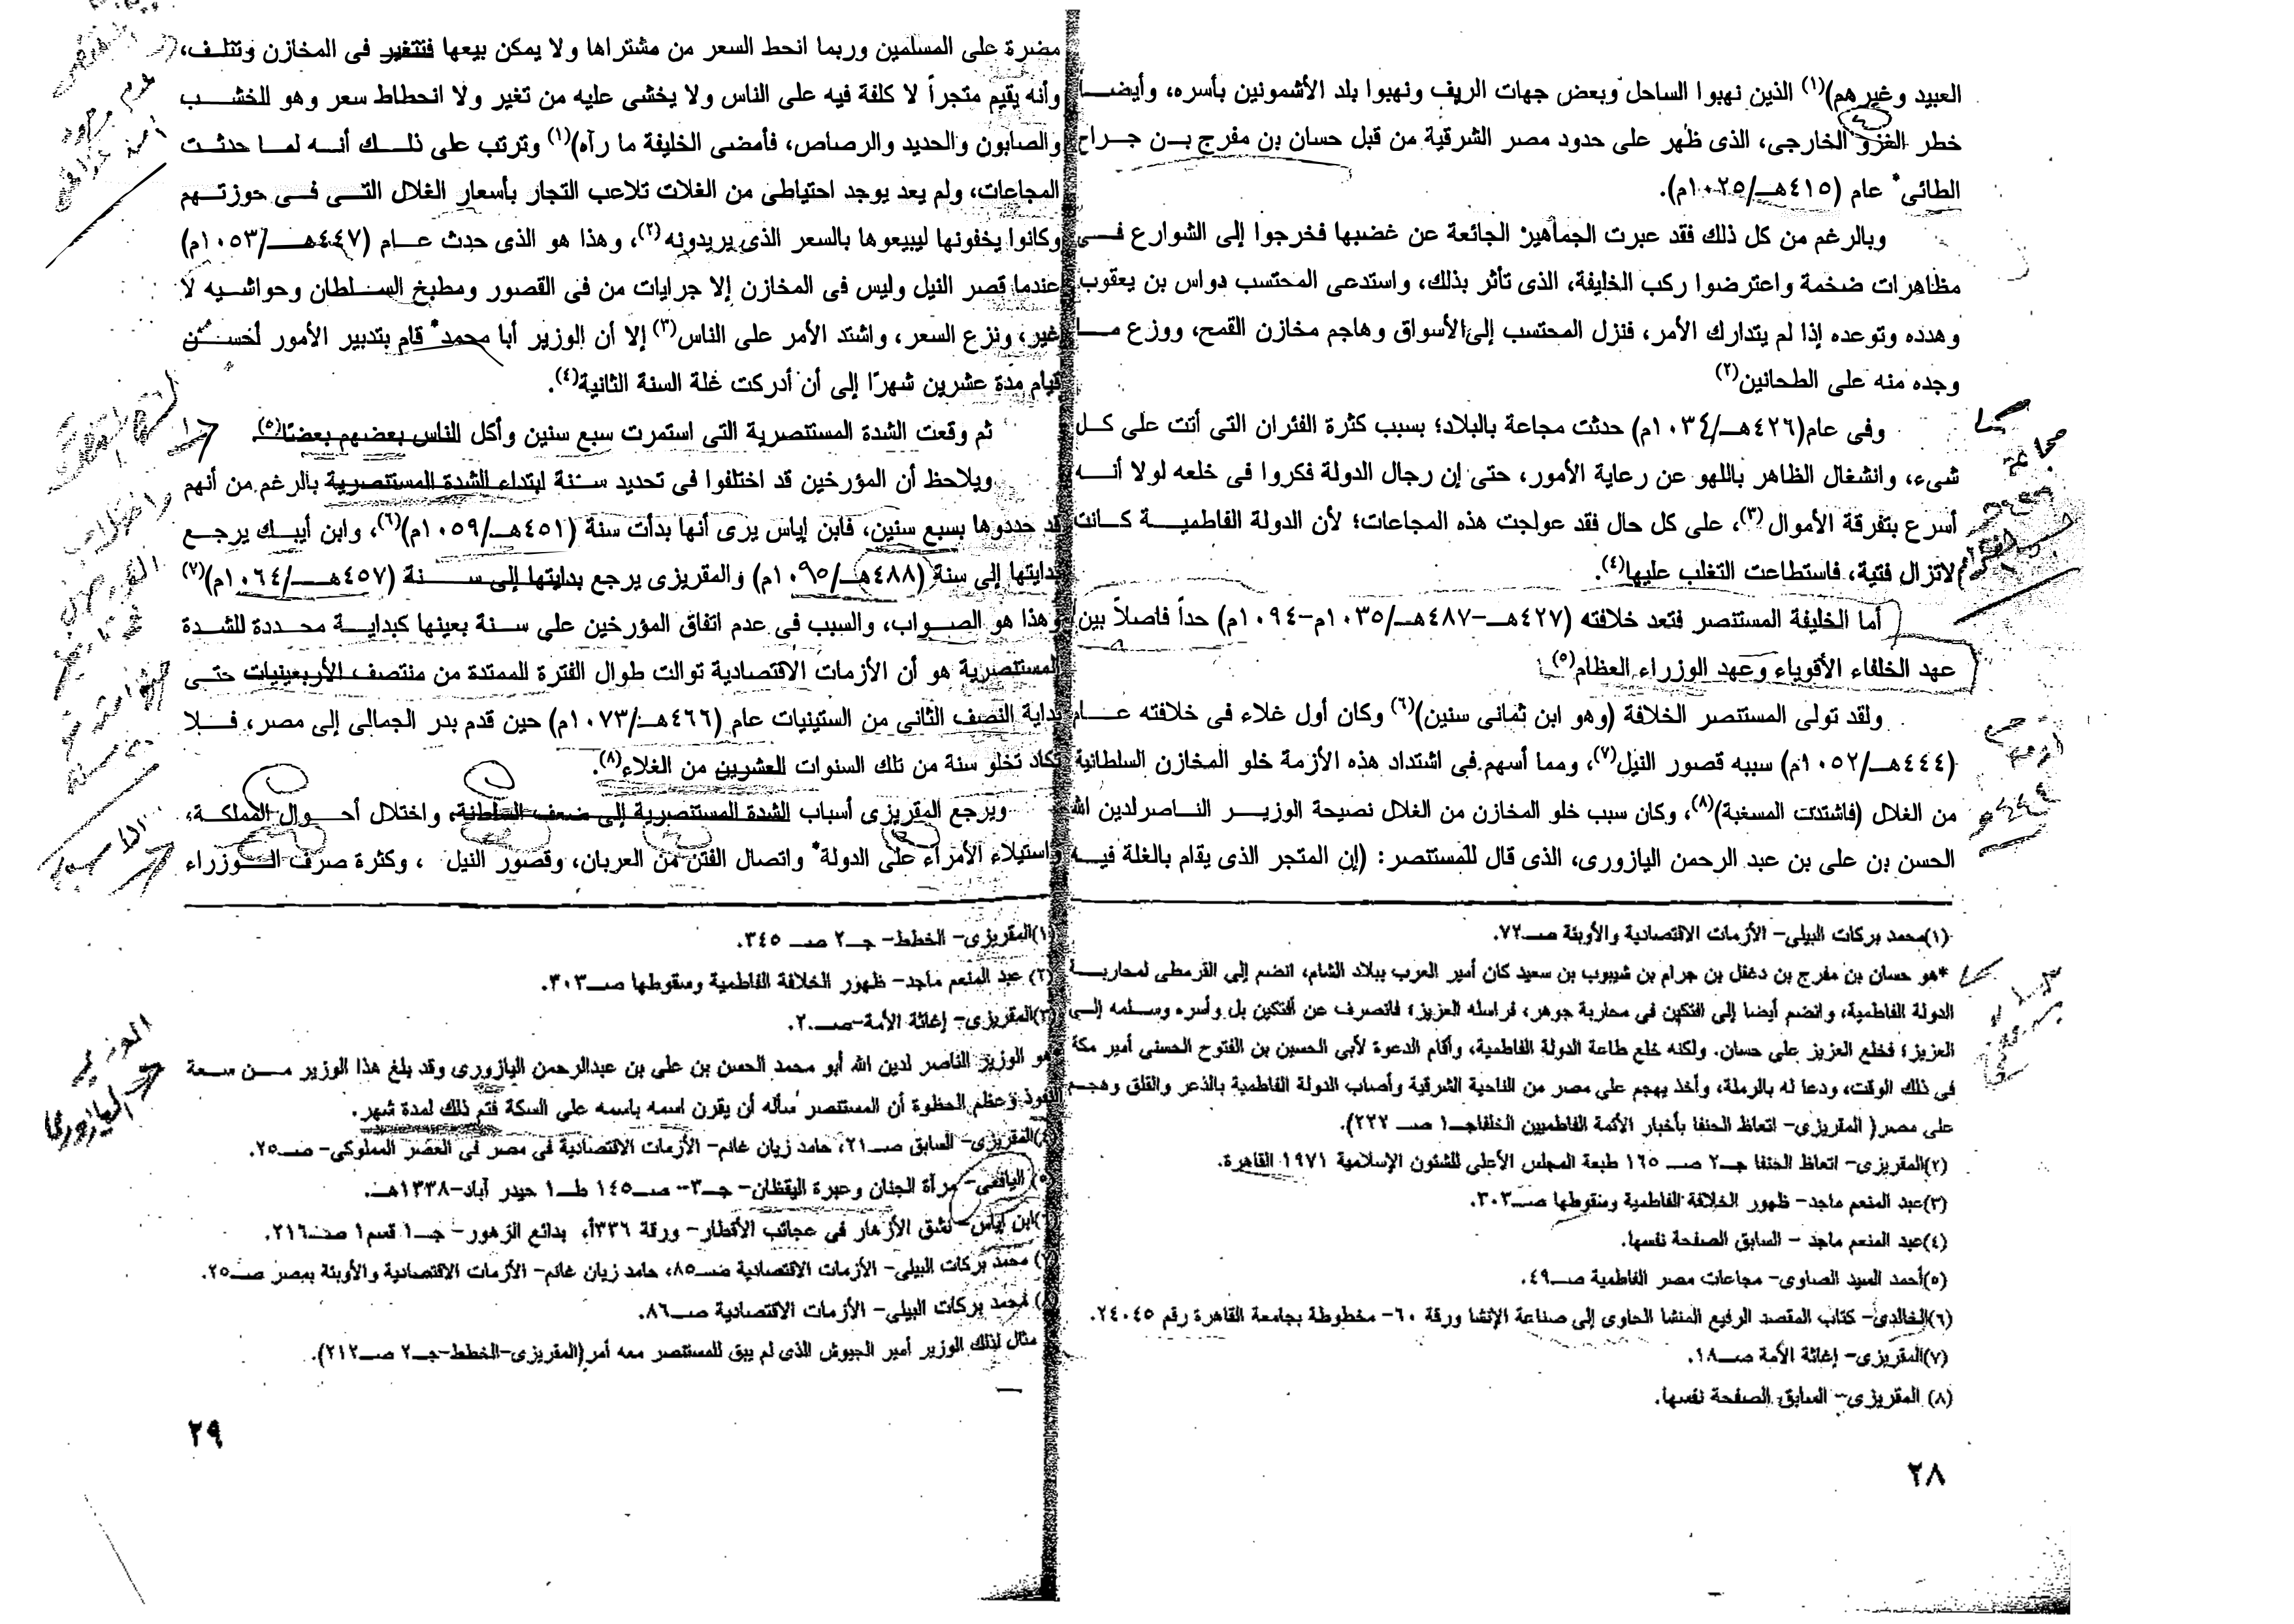 العبيد وغيرهم)(١) الذين نهبوا الساحل وبعض جهات الريف ونهبوا بلد الأشمونين بأسره، وأيضــا
خطر الغزو الخارجى، الذى ظهر على حدود مصر الشرقية من قبل حسان بن مفرج بــن جــراح
الطائى* عام (٤١٥هــ/١٠٢٥م).
وبالرغم من كل ذلك فقد عبرت الجماهير الجائعة عن غضبها فخرجوا إلى الشوارع فــى
مظاهرات ضخمة واعترضوا ركب الخليفة، الذى تأثر بذلك، واستدعى المحتسب دواس بن يعقوب
وهدده وتوعده إذا لم يتدارك الأمر، فنزل المحتسب إلى الأسواق وهاجم مخازن القمح، ووزع مــا
وجده منه على الطحانين(٢)
وفى عام(٤٢٦هــ/١٠٣٤م) حدثت مجاعة بالبلاد؛ بسبب كثرة الفئران التى أتت على كــل
شىء، وانشغال الظاهر باللهو عن رعاية الأمور، حتى إن رجال الدولة فكروا فى خلعه لولا أنــه
أسرع بتفرقة الأموال(٣)، على كل حال فقد عولجت هذه المجاعات؛ لأن الدولة الفاطميــة كــانت
لاتزال فتية، فاستطاعت التغلب عليها(٤).
أما الخليفة المستنصر فتعد خلافته (٤٢٧هــ-٤٨٧هــ/١٠٣٥م-١٠٩٤م) حداً فاصلاً بين
عهد الخلفاء الأقوياء وعهد الوزراء العظام(٥)
ولقد تولى المستنصر الخلافة (وهو ابن ثمانى سنين)(٦) وكان أول غلاء فى خلافته عــام
(٤٤٤هــ/١٠٥٢م) سببه قصور النيل(٧)، ومما أسهم فى اشتداد هذه الأزمة خلو المخازن السلطانية
من الغلال (فاشتدت المسغبة)(٨)، وكان سبب خلو المخازن من الغلال نصيحة الوزيــر النــاصرلدين الله
الحسن بن على بن عبد الرحمن اليازورى، الذى قال للمستنصر: (إن المتجر الذى يقام بالغلة فيــه
(١)محمد بركات البيلى- الأزمات الاقتصادية والأوبئة صــ٧٢.
*هو حسان بن مفرج بن دغفل بن جرام بن شبيوب بن سعيد كان أمير العرب ببلاد الشام، انضم إلى القرمطى لمحاربــة
الدولة الفاطمية، وانضم أيضا إلى الفتكين فى محاربة جوهر، فراسله العزيز؛ فانصرف عن ألفتكين بل وأسره وسلمه إلــى
العزيز؛ فخلع العزيز على حسان. ولكنه خلع طاعة الدولة الفاطمية، وأقام الدعوة لأبى الحسين بن الفتوح الحسنى أمير مكة
فى ذلك الوقت، ودعا له بالرملة، وأخذ يهجم على مصر من الناحية الشرقية وأصاب الدولة الفاطمية بالذعر والقلق وهجم
على مصر( المقريزى- اتعاظ الحنفا بأخبار الأئمة الفاطميين الخلفاجــ١ صــ ٢٢٢).
(٢)المقريزى- اتعاظ الحنفا جــ٢ صــ ١٦٥ طبعة المجلس الأعلى للشئون الإسلامية ١٩٧١ القاهرة.
(٣)عبد المنعم ماجد- ظهور الخلافة الفاطمية وسقوطها صــ٣٠٣.
(٤)عبد المنعم ماجد - السابق الصفحة نفسها.
(٥)أحمد السيد الصاوى- مجاعات مصر الفاطمية صــ٤٩.
(٦)الخالدى- كتاب المقصد الرفيع المنشا الحاوى إلى صناعة الإنشا ورقة ٦٠- مخطوطة بجامعة القاهرة رقم ٢٤٠٤٥.
(٧)المقريزى- إغاثة الأمة صــ١٨.
(٨) المقريزى- السابق الصفحة نفسها.
٢٨
مضرة على المسلمين وربما انحط السعر من مشتراها ولا يمكن بيعها فتتغير فى المخازن وتتلــف،
وأنه يقيم متجراً لا كلفة فيه على الناس ولا يخشى عليه من تغير ولا انحطاط سعر وهو الخشــب
والصابون والحديد والرصاص، فأمضى الخليفة ما رآه)(١) وترتب على ذلــك أنــه لمــا حدثــت
المجاعات، ولم يعد يوجد احتياطى من الغلات تلاعب التجار بأسعار الغلال التــى فــى حوزتــهم
وكانوا يخفونها ليبيعوها بالسعر الذى يريدونه(٢)، وهذا هو الذى حدث عــام (٤٤٧هــ/١٠٥٣م)
عندما قصر النيل وليس فى المخازن إلا جرايات من فى القصور ومطبخ الســلطان وحواشــيه لا
غير، ونزع السعر، واشتد الأمر على الناس(٣) إلا أن الوزير أبا محمد* قام بتدبير الأمور أحســن
قيام مدة عشرين شهرًا إلى أن أدركت غلة السنة الثانية(٤).
ثم وقعت الشدة المستنصرية التى استمرت سبع سنين وأكل الناس بعضهم بعضًا(٥).
ويلاحظ أن المؤرخين قد اختلفوا فى تحديد ســنة ابتداء الشدة المستنصرية بالرغم من أنهم
قد حددوها بسبع سنين، فابن إياس يرى أنها بدأت سنة (٤٥١هــ/١٠٥٩م)(٦)، وابن أيبــك يرجــع
بدايتها إلى سنة (٤٨٨هــ/١٠٩٥م) والمقريزى يرجع بدايتها إلى ســنة (٤٥٧هــ/١٠٦٤م)(٧)
وهذا هو الصــواب، والسبب فى عدم اتفاق المؤرخين على ســنة بعينها كبدايــة محــددة للشدة
المستنصرية هو أن الأزمات الاقتصادية توالت طوال الفترة الممتدة من منتصف الأربعينيات حتــى
بداية النصف الثانى من الستينيات عام (٤٦٦هــ/١٠٧٣م) حين قدم بدر الجمالى إلى مصر، فــلا
تكاد تخلو سنة من تلك السنوات العشرين من الغلاء(٨).
ويرجع المقريزى أسباب الشدة المستنصرية إلى ضعف السلطنة، واختلال أحــوال المملكــة،
واستيلاء الأمراء على الدولة* واتصال الفتن من العربان، وقصور النيل ، وكثرة صرف الــوزراء
(١)المقريزى- الخطط- جــ٢ صــ ٣٤٥.
(٢) عبد المنعم ماجد- ظهور الخلافة الفاطمية وسقوطها صــ٣٠٣.
(٣)المقريزى- إغاثة الأمة-صــ٢٠.
هو الوزير الناصر لدين الله أبو محمد الحسن بن على بن عبدالرحمن اليازورى وقد بلغ هذا الوزير مــن ســعة
النفوذ وعظم الحظوة أن المستنصر سأله أن يقرن اسمه باسمه على السكة فتم ذلك لمدة شهر.
(٤)المقريزى- السابق صــ٢١، حامد زيان غانم- الأزمات الاقتصادية فى مصر فى العصر المملوكى- صــ٢٥.
(٥) اليافعى- مرآة الجنان وعبرة اليقظان- جــ٣- صــ١٤٥ طــ١ حيدر آباد-١٣٣٨هــ.
(٦)ابن إياس- نشق الأزهار فى عجائب الأقطار- ورقة ٣٣٦أ، بدائع الزهور- جــ١ قسم١ صــ٢١٦.
(٧) محمد بركات البيلى- الأزمات الاقتصادية صــ٨٥، حامد زيان غانم- الأزمات الاقتصادية والأوبئة بمصر صــ٢٥.
(٨) محمد بركات البيلى- الأزمات الاقتصادية صــ٨٦.
مثال لذلك الوزير أمير الجيوش الذى لم يبق للمستنصر معه أمر(المقريزى-الخطط-جــ٢ صــ٢١٢).
٢٩